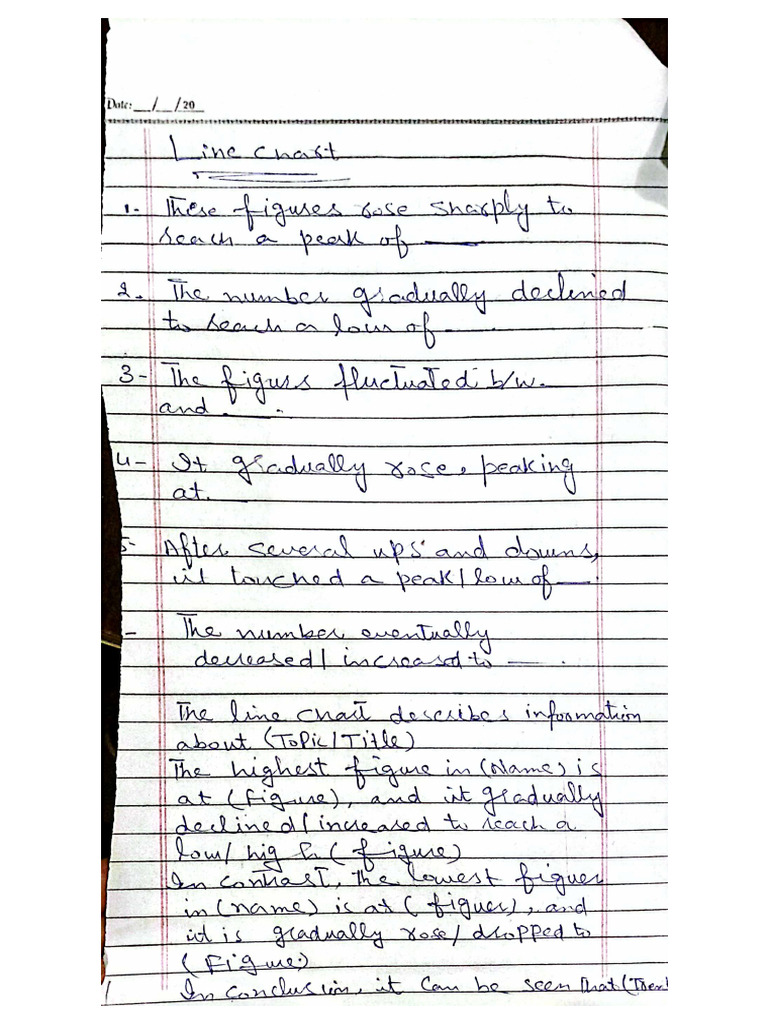 Date: __/__/20__
Line chart
1- These figures rose sharply to
reach a peak of ——
2- The number gradually declined
to reach a low of ——.
3- The figurs fluctuated b/w.
and ——.
4- It gradually rose, peaking
at. ——
5- After several ups and downs,
it touched a peak/low of ——.
- The number eventually
decreased/increased to ——.
The line chart describes information
about (Topic/Title)
The highest figure in (Name) is
at (figure), and it gradually
declined/increased to reach a
low/high (figure)
In contrast, the lowest figuer
in (name) is at (figuer), and
it is gradually rose/dropped to
(Figure.)
In conclusion, it can be seen that (